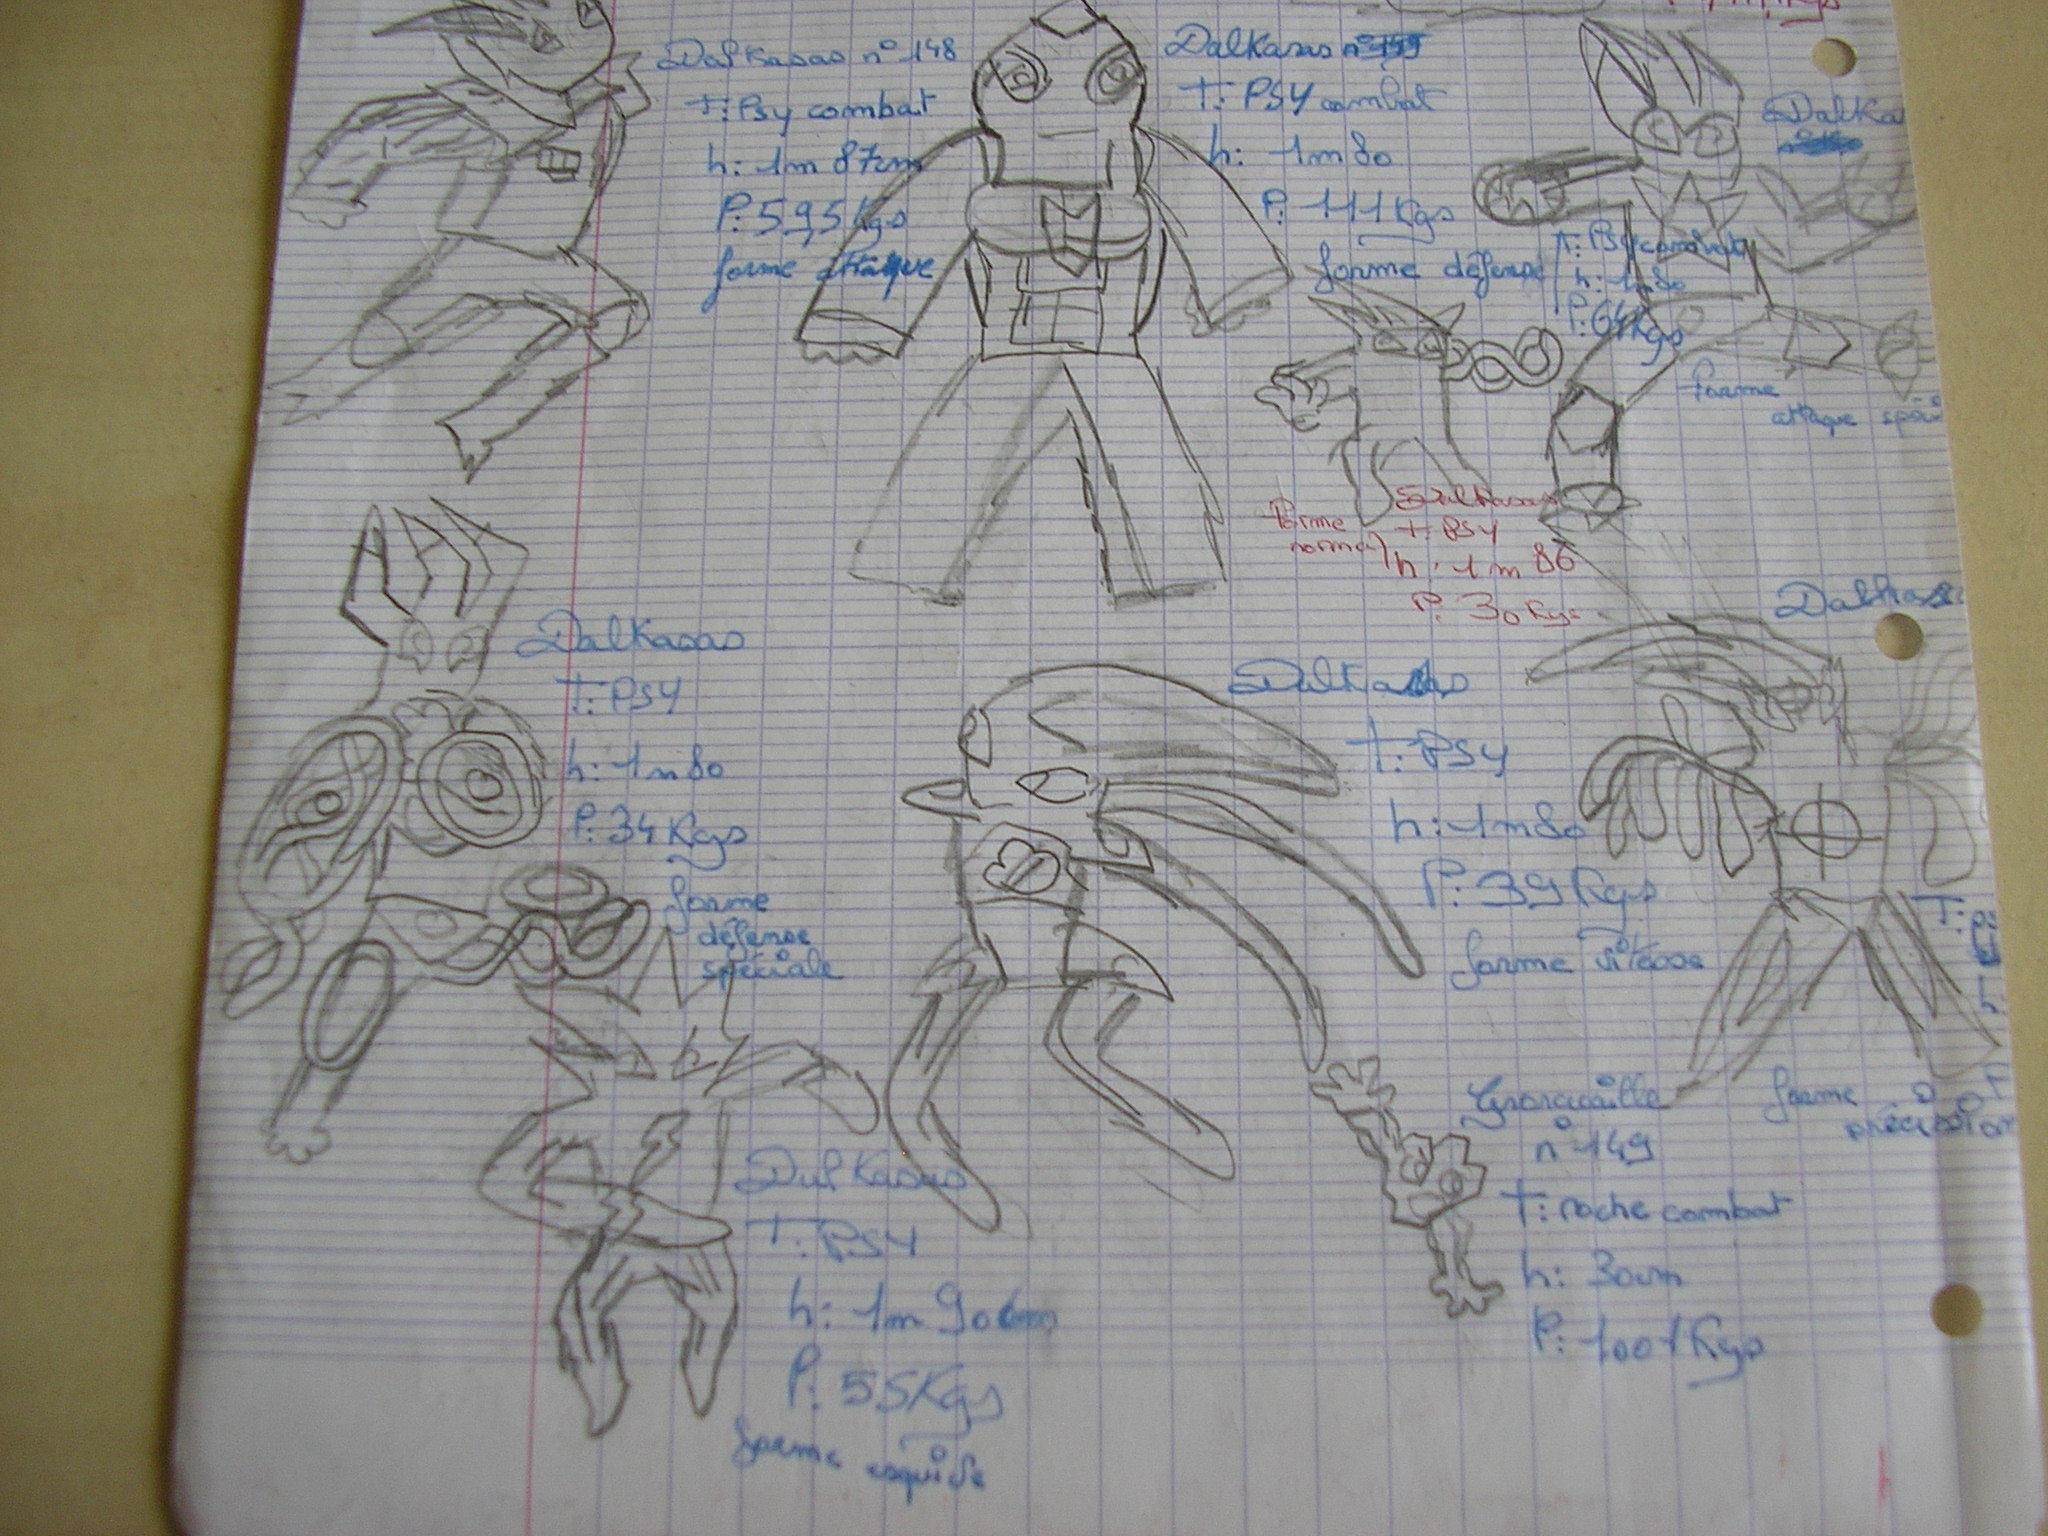 DalKasas n° 148
T: Psy combat
h: 1m 87cm
P: 59,5Kgs
forme attaque
DalKasas
T: PSY combat
h: 1m80
P: 111Kgs
forme défense
DalKa
T: PSY combat
h: 1m80
P: 64Kgs
forme
attaque spé
forme
normal
DalKasas
T: PSY
h: 1m 86
P: 30Kgs
DalKasas
T: PSY
h: 1m80
P: 34Kgs
forme
défense
spéciale
DalKasas
T: PSY
h: 1m80
P: 39Kgs
forme vitesse
DalKasas
T:
h:
forme
précision
DalKasas
T: PSY
h: 1m 90cm
P: 55Kgs
forme esquive
n° 149
T: roche combat
h: 30cm
P: 1001Kgs